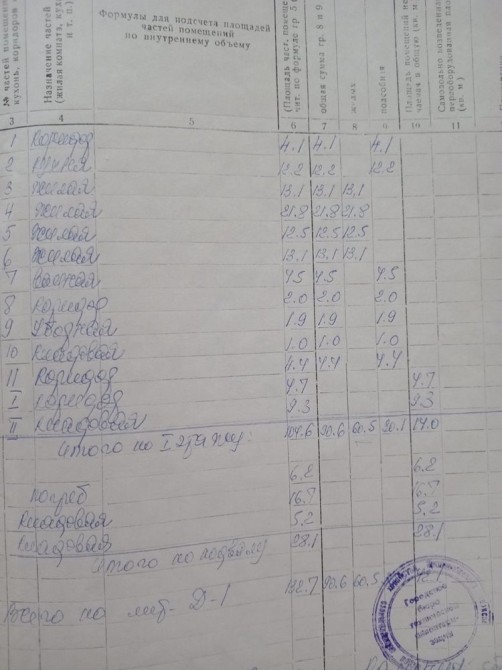 № частей помещений
кухонь, коридоров
Назначение частей
(жилая комната, кухня
и т. п.)
Формулы для подсчета площадей
частей помещений
по внутреннему объему
(Площадь част. помеще
чит. по формуле гр. 5
общая сумма гр. 8 и 9
жилых
подсобная
Площадь помещений
в общую (кв. м)
Самовольно возведенная
переоборудованная
(кв. м)
3 4 5 6 7 8 9 10 11
1 Коридор 4.1 4.1 4.1
2 Кухня 12.2 12.2 12.2
3 Жилая 13.1 13.1 13.1
4 Жилая 21.8 21.8 21.8
5 Жилая 12.5 12.5 12.5
6 Жилая 13.1 13.1 13.1
7 4.5 4.5 4.5
8 Коридор 2.0 2.0 2.0
9 Уборная 1.9 1.9 1.9
10 Кладовая 1.0 1.0 1.0
11 Коридор 4.4 4.4 4.4
I Коридор 4.7 4.7
II Кладовая 9.3 9.3
Итого по I этажу: 104.6 90.6 60.5 30.1 14.0
6.2 6.2
Погреб 16.7
Кладовая 5.2 5.2
Кладовая 28.1 28.1
Итого по подвалу
Всего по лит. Д-1 132.7 90.6 60.5
Городское
бюро
технической
инвентари-
зации